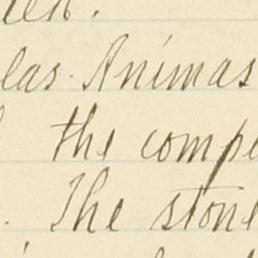 las. Animas
the compe
. The stone